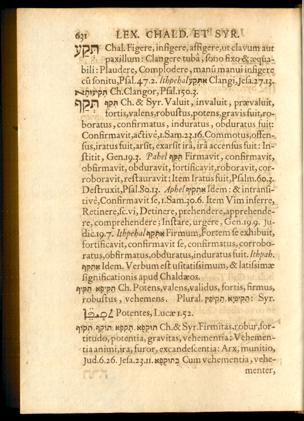 631 LEX. CHALD. ET SYR.
תְּקַע Chal. Figere, infigere, affigere, ut clavum aut
paxillum: Clangere tubâ, sono fixo & æqua-
bili: Plaudere, Complodere, manũ manui infigere
cũ sonitu, Psal. 47.2. Ithpehal אתקע Clangi, Jesa. 27.13.
Ch. Clangor, Psal. 150.3.
תְּקֵף תקף Ch. & Syr. Valuit, invaluit, prævaluit,
fortis, valens, robustus, potens, gravis fuit, ro-
boratus, confirmatus, induratus, obduratus fuit:
Confirmavit, activè, 1. Sam. 23.16. Commotus, offen-
sus, iratus fuit, arsit, exarsit irâ, ira accensus fuit: In-
stitit, Gen. 19.3. Pahel תקיף Firmavit, confirmavit,
obfirmavit, obduravit, fortificavit, roboravit, cor-
roboravit, restauravit: Item Iratus fuit, Psalm. 60.3.
Destruxit, Psal. 80.13. Aphel אתקיף Idem: & intransi-
tivè, Confirmavit se, 1. Sam. 30.6. Item Vim inferre,
Retinere, sc. vi, Detinere, prehendere, apprehende-
re, comprehendere; Instare, urgere, Gen. 19.9. Ju-
dic. 19.7. Ithpehal אתקף Firmum, Fortem se exhibuit,
fortificavit, confirmavit se, confirmatus, corrobo-
ratus, obfirmatus, obduratus, induratus fuit. Ithpah.
אתקף Idem. Verbum est usitatissimum, & latissimæ
significationis apud Chaldæos.
תקיף Ch. Potens, valens, validus, fortis, firmus,
robustus, vehemens. Plural. Syr.
Potentes, Lucæ 1.52.
Ch. & Syr. Firmitas, robur, for-
titudo, potentia, gravitas, vehementia: Vehemen-
tia animi, ira, furor, excandescentia: Arx, munitio,
Jud. 6.26. Jesa. 23.11. Cum vehementia, vehe-
menter,